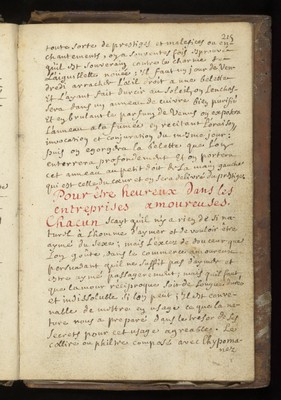 215
toutes sortes de prestiges et malefices ou en
chantements, on a souventes fois éprouvé
qu'il est souverain contre les charmes
l'aiguillette nouée; il faut un jour de Ven
dredi arracher l'œil droit a une belette
et l'ayant fait durcir au soleil, on l'enchas
sera dans un anneau de cuivre bien purifié
et en brulant le parfum de Venus on exposera
l'anneau a la fumée en recitant l'oraison,
invocation et conjuration du mesme jour;
puis on egorgera la belette que l'on
enterrera profondement et on portera
cet anneau au petit doit de la main gauche
qui est celle du cœur et on sera delivré du prestige
Pour être heureux dans les
entreprises amoureuses.
Chacun scayt qu'il n'y a rien de si na
turel a l'homme d'aymer et de vouloir être
aymé du sexe; mais l'exces de douceur que
l'on goute dans le commerce amoureux
persuadant qu'il ne suffit pas d'aymer et
estre aymé passagerement, mais qu'il faut
que l'amour reciproque soit de longue durée
et indissoluble si l'on peut; il est conve
nable de mettre en usage ce que la na
ture nous a preparé dans le tresor de ses
secrets pour cet usage agreable. Le
collier ou philtre composé avec l'hypoma
nez